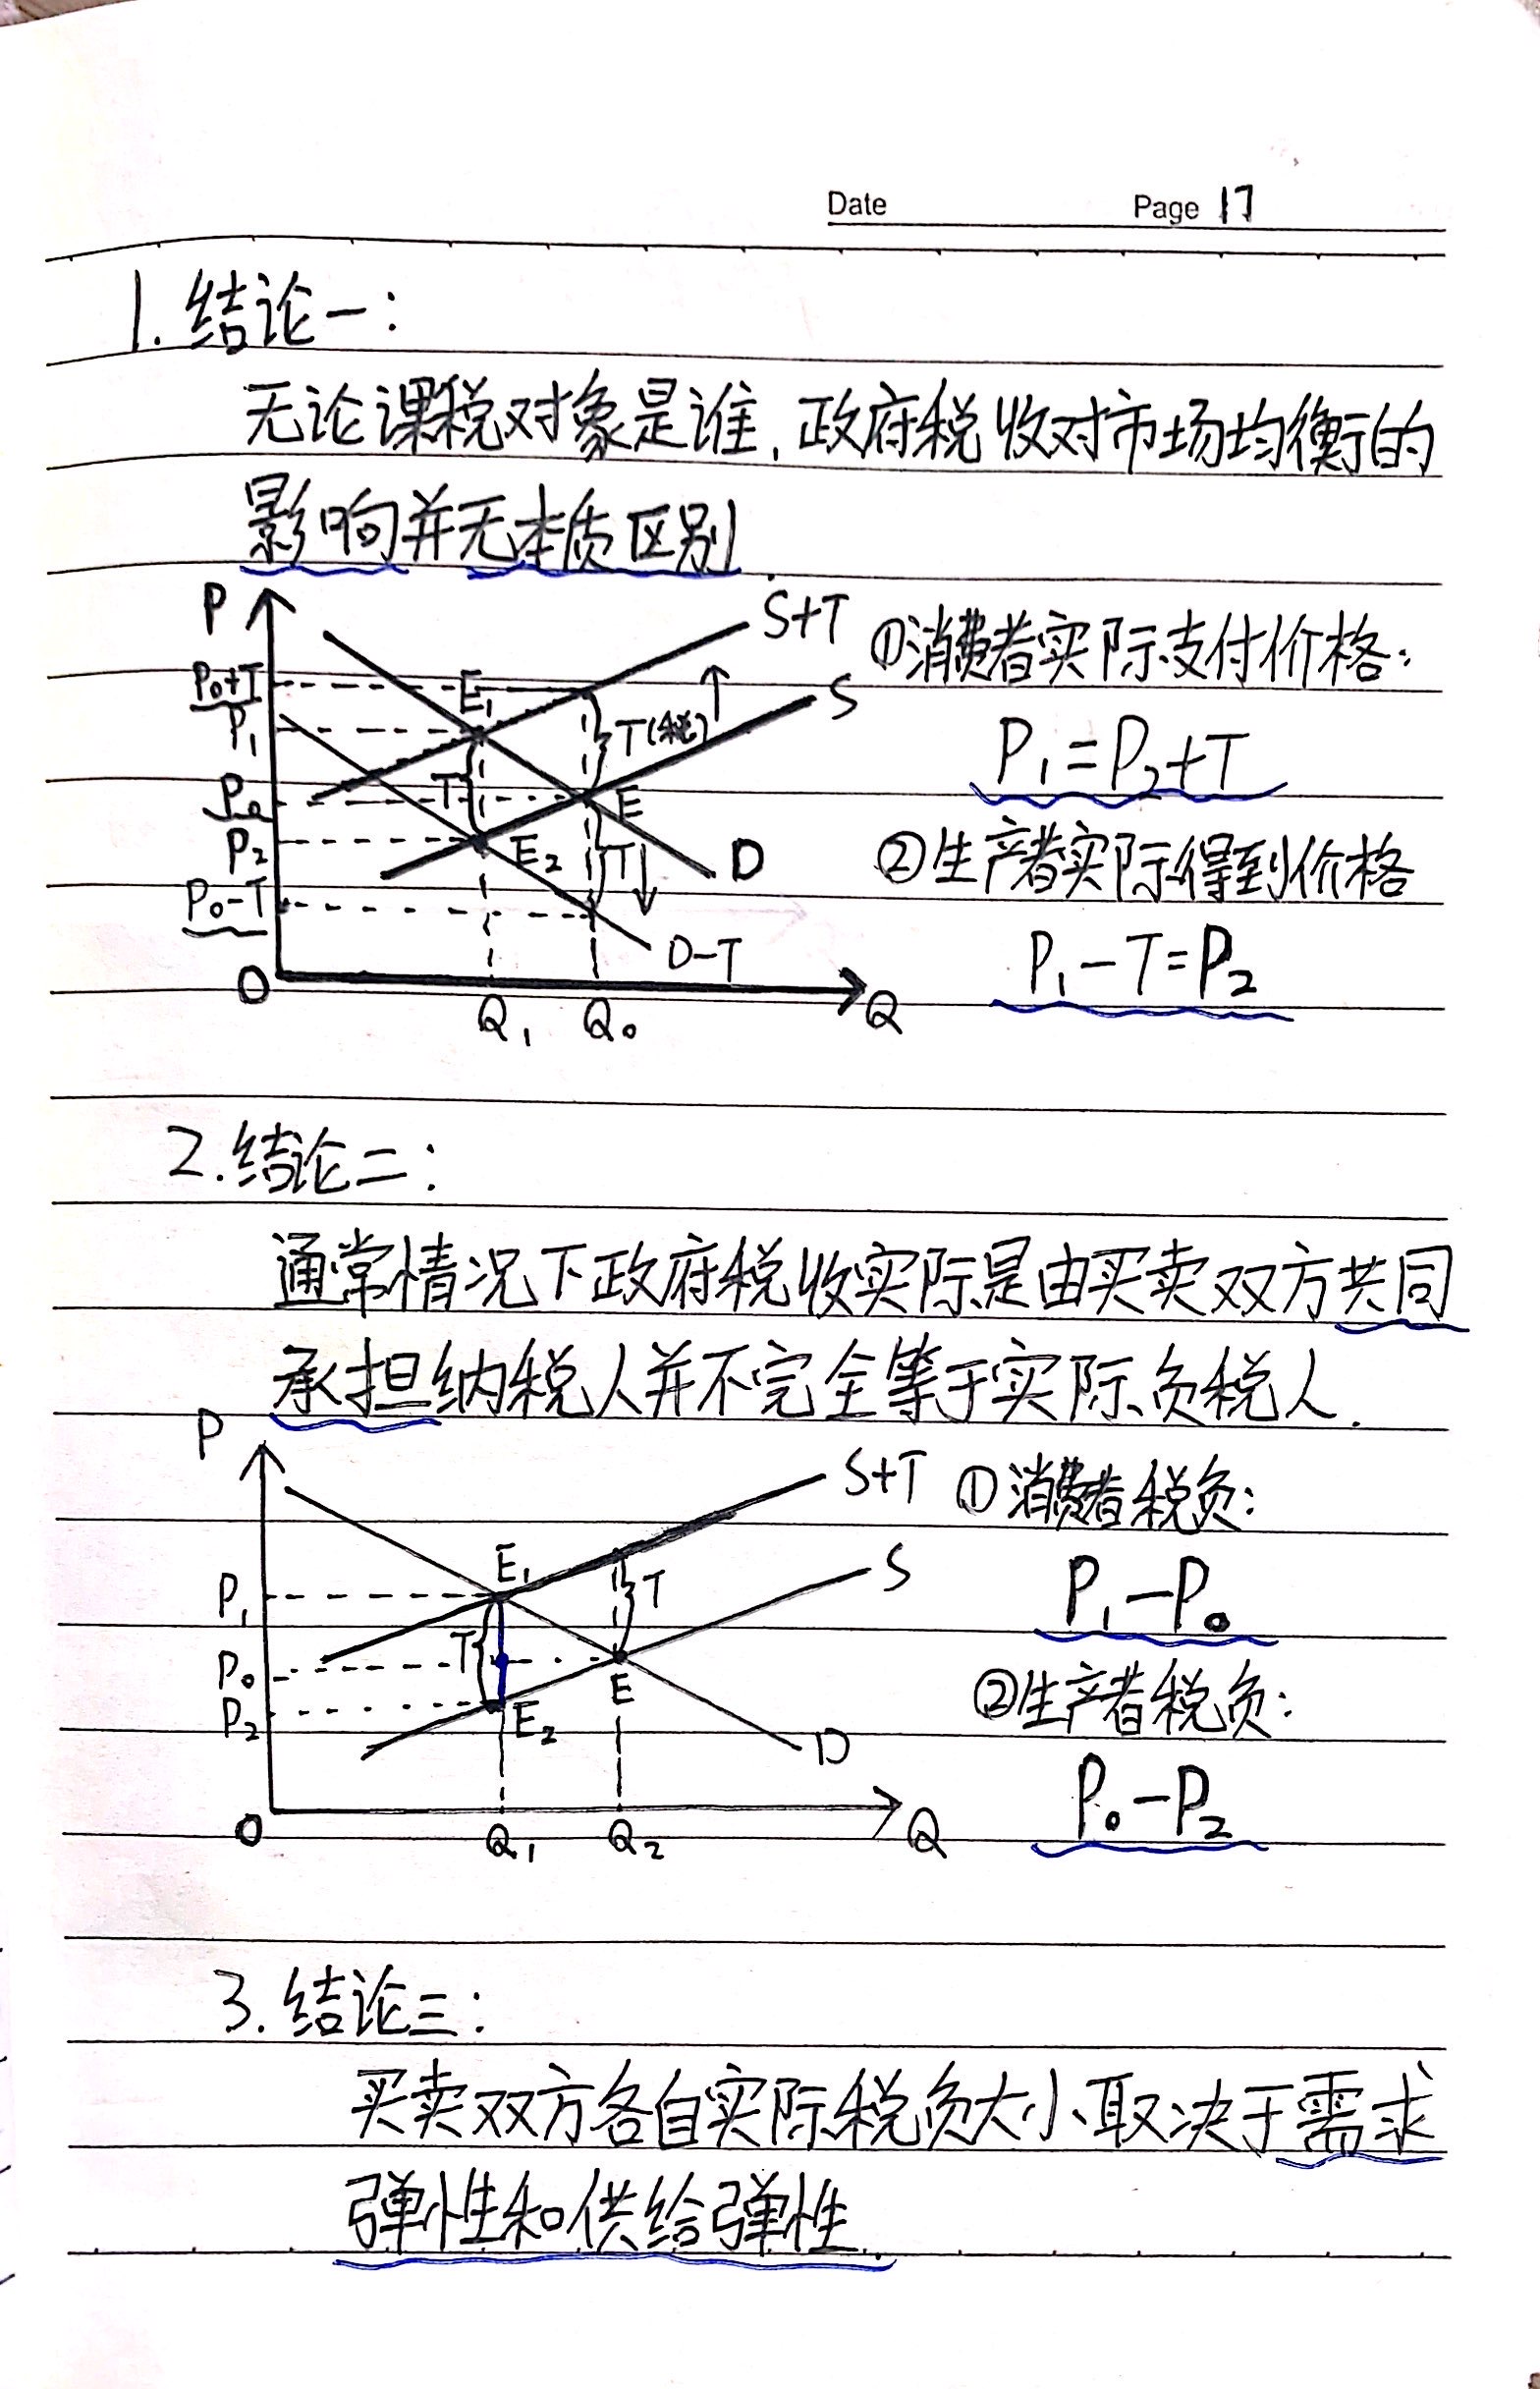 Date Page 17
1. 结论一:
无论课税对象是谁,政府税收对市场均衡的
影响并无本质区别.
P
S+T
S
P₀+T
P₁
P₀
P₂
P₀-T
E₁
E
E₂
T
T(税)
T
D
D-T
O
Q₁ Q₀ Q
①消费者实际支付价格:
P₁=P₂+T
②生产者实际得到价格
P₁-T=P₂
2.结论二:
通常情况下政府税收实际是由买卖双方共同
承担纳税人并不完全等于实际负税人.
P
S+T
S
P₁
P₀
P₂
E₁
E
E₂
T
T
D
O
Q₁ Q₂ Q
①消费者税负:
P₁-P₀
②生产者税负:
P₀-P₂
3.结论三:
买卖双方各自实际税负大小取决于需求
弹性和供给弹性.